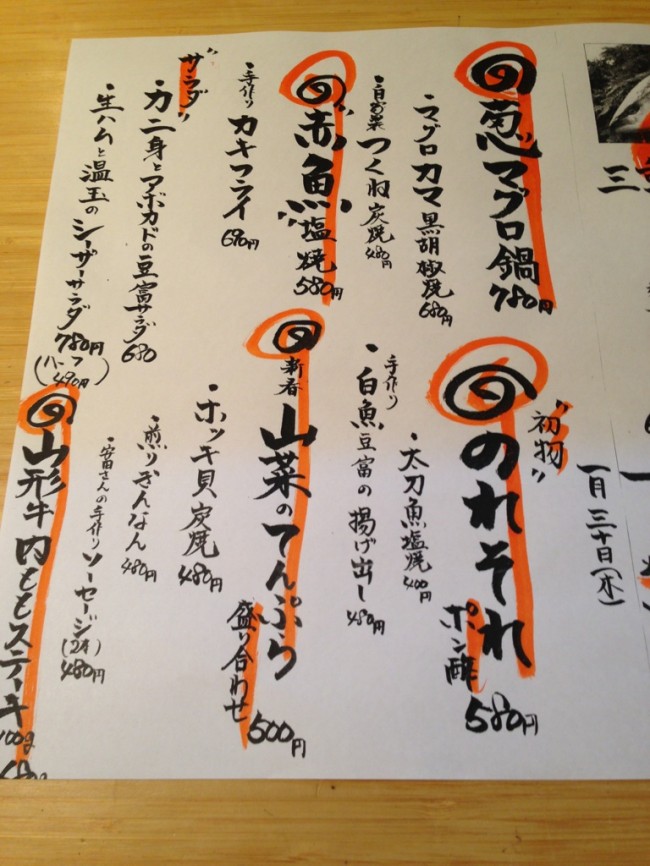 三
一月三十日(木)
葱マグロ鍋
780円
・マグロカマ黒胡椒焼 680円
つくね炭焼 480円
赤魚塩焼
580円
・手作りカキフライ 690円
サラダ
・カニ身とアボカドの豆富サラダ 680
・生ハムと温玉のシーザーサラダ 780円
(ハーフ 490円)
"初物"
のれそれ
ポン酢
580円
・太刀魚塩焼 400円
・手作り白魚豆富の揚げ出し 480円
新春
山菜のてんぷら
盛り合わせ
500円
・ホッキ貝炭焼 480円
・煎りぎんなん 480円
・安田さんの手作りソーセージ(2本) 480円
山形牛内ももステーキ
100g